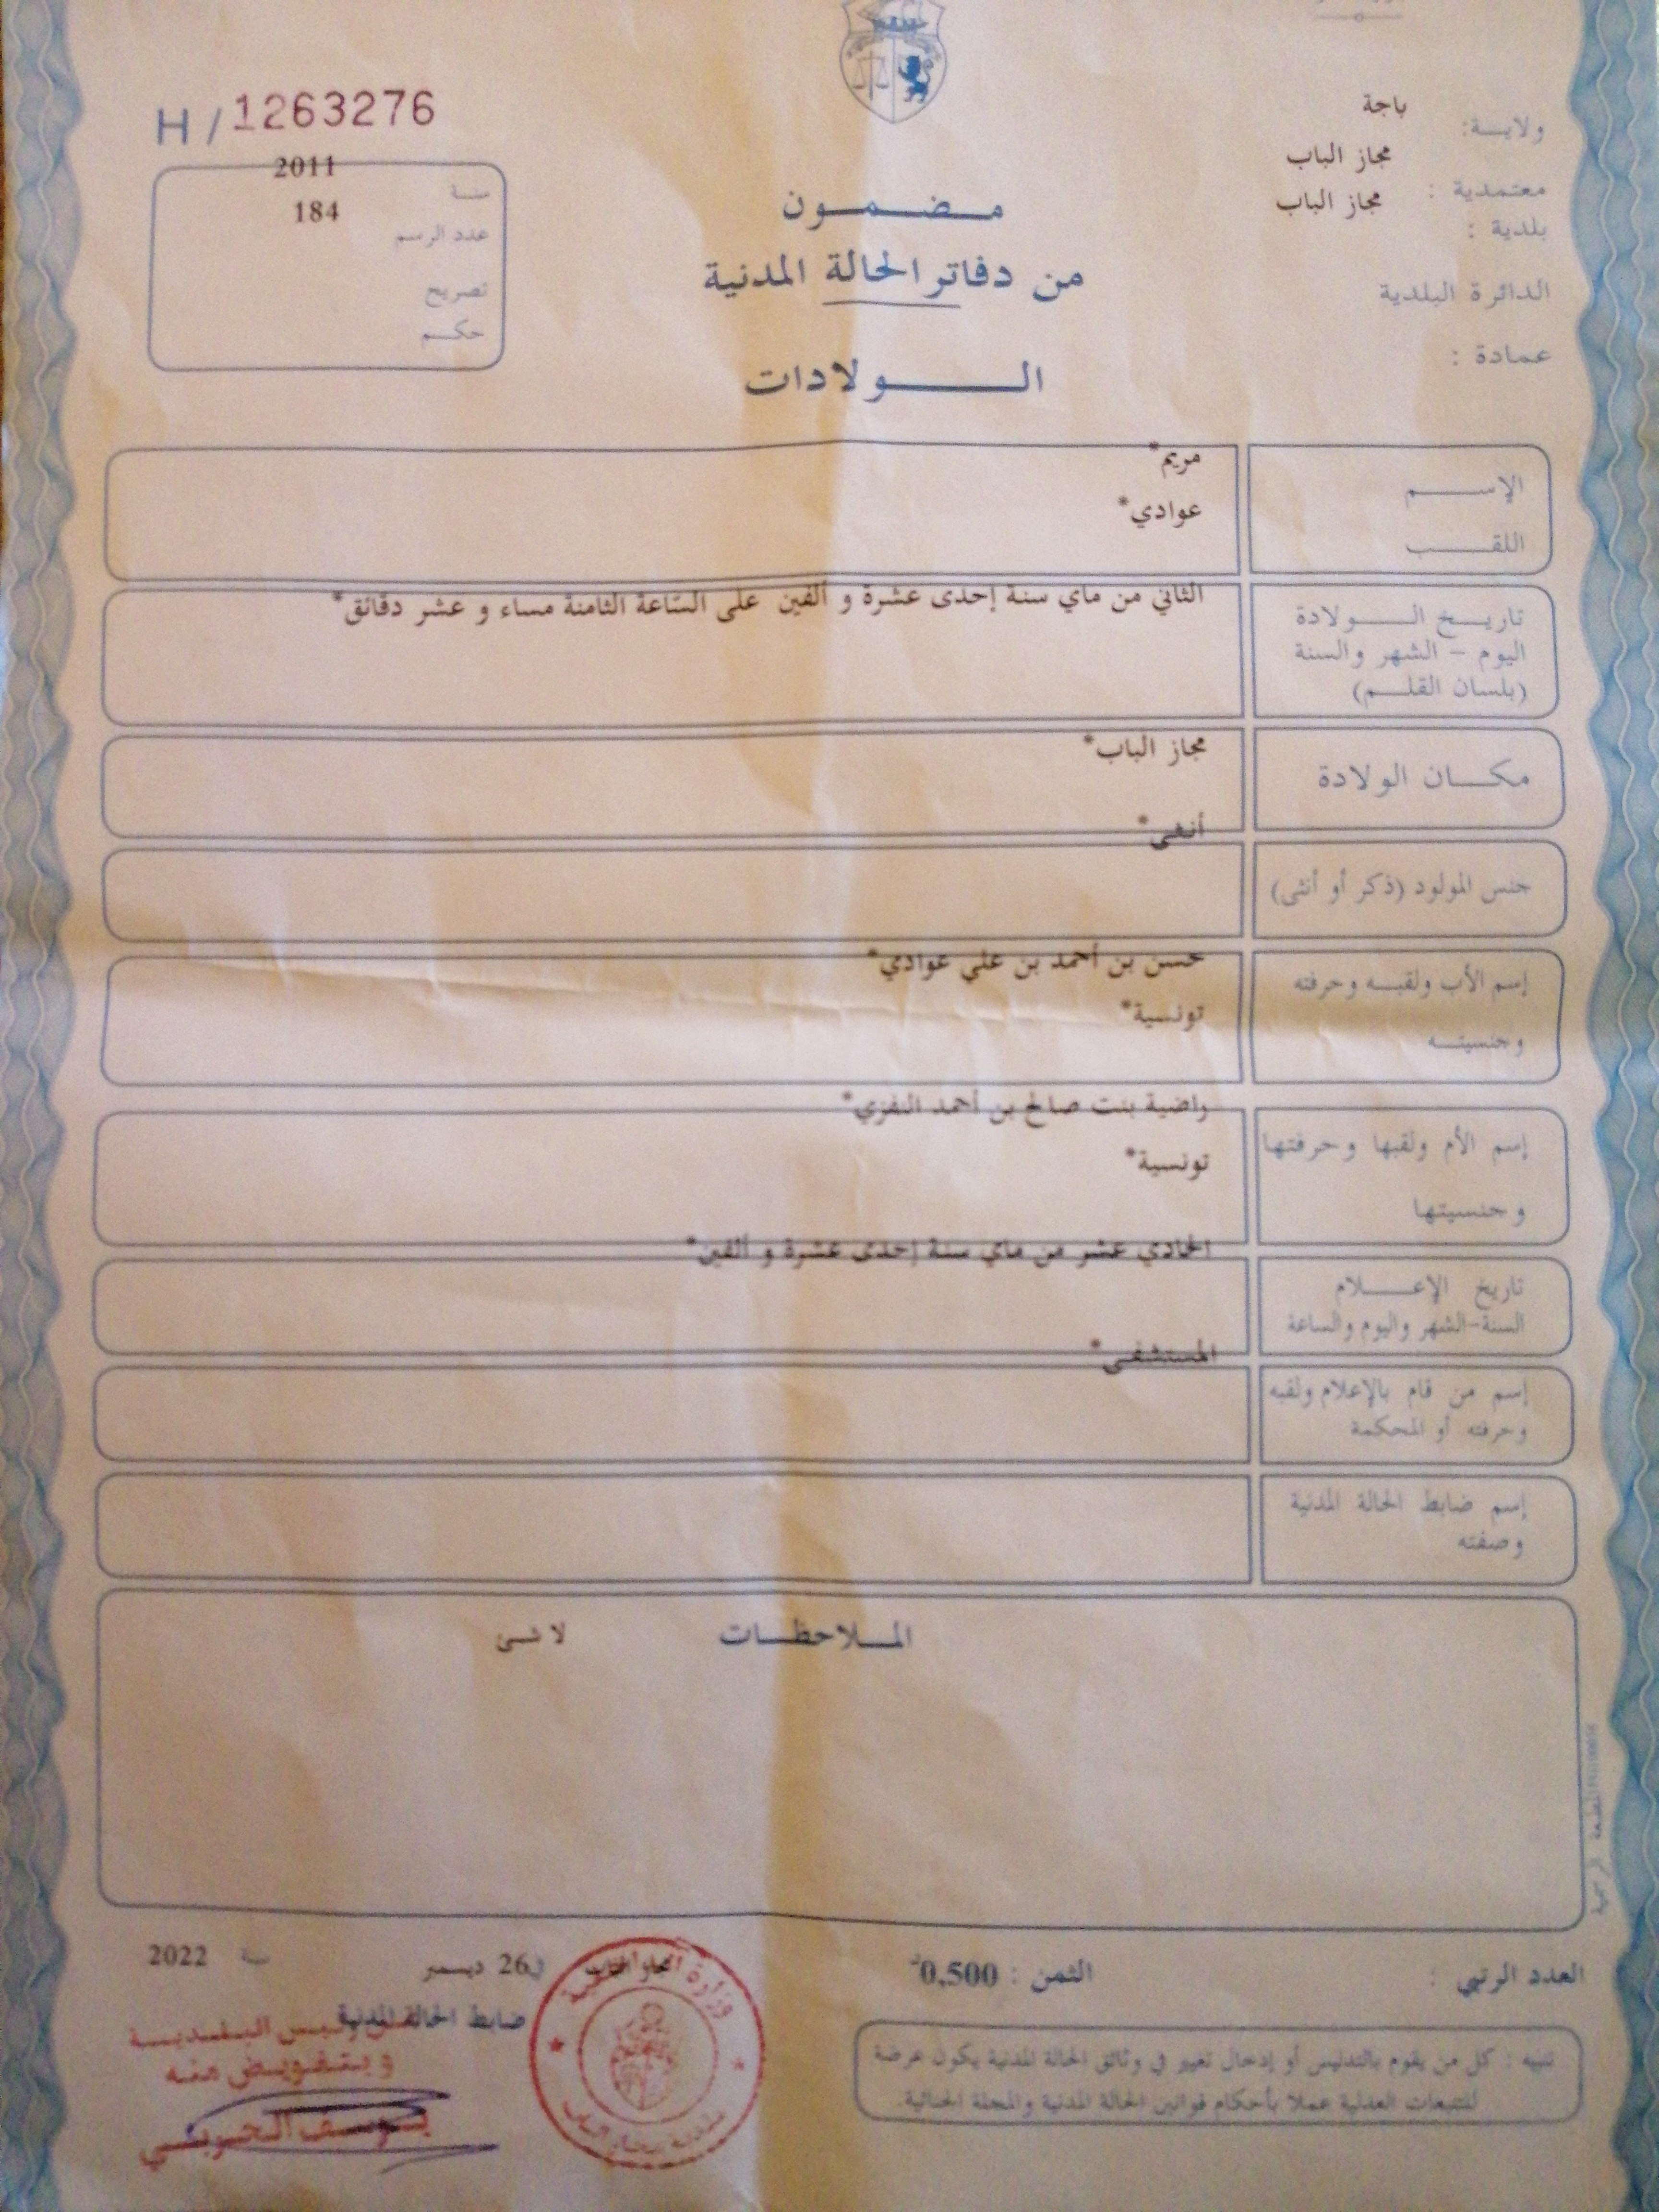 H/1263276
ولايـــة: باجة
معتمدية : مجاز الباب
بلدية : مجاز الباب
الدائرة البلدية
عمادة :
سنـة 2011
عدد الرسم 184
تصريح
حكـــم
مـضـمـون
من دفاتر الحالة المدنية
الـــولادات
الإســـم مريم*
اللقـــب عوادي*
تاريـخ الـــولادة الثاني من ماي سنة إحدى عشرة و ألفين على الساعة الثامنة مساء و عشر دقائق*
اليوم – الشهر والسنة
(بلسان القلـــم)
مكـــان الولادة مجاز الباب*
جنس المولود (ذكر أو أنثى) أنثى*
إسم الأب ولقبـــه وحرفته حسن بن أحمد بن علي عوادي*
وجنسيتـــه تونسية*
إسم الأم ولقبها وحرفتها راضية بنت صالح بن أحمد النفزي*
وجنسيتها تونسية*
تاريخ الإعـــلام الحادي عشر من ماي سنة إحدى عشرة و ألفين*
السنة–الشهر واليوم والساعة
إسم من قام بالإعلام ولقبه المستشفى*
وحرفته أو المحكمة
إسم ضابط الحالة المدنية
وصفته
المـــلاحظـــات لا شئ
العدد الرتبي :
الثمن : 0,500
مجاز الباب في 26 ديسمبر سنة 2022
ضابط الحالة المدنية
عن رئيس البلديـــة
و بتفويض منه
يوسف
تنبيه : كل من يقوم بالتدليس أو إدخال تغيير في وثائق الحالة المدنية يكون عرضة
للتتبعات العدلية عملا بأحكام قوانين الحالة المدنية والمجلة الجنائية.
وزارة
بلدية مجاز الباب
المطبعة الرسمية